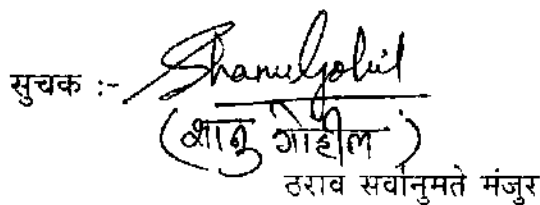 सुचक :- Shanu Gohil
(शानु गोहील)
ठराव सर्वानुमते मंजुर